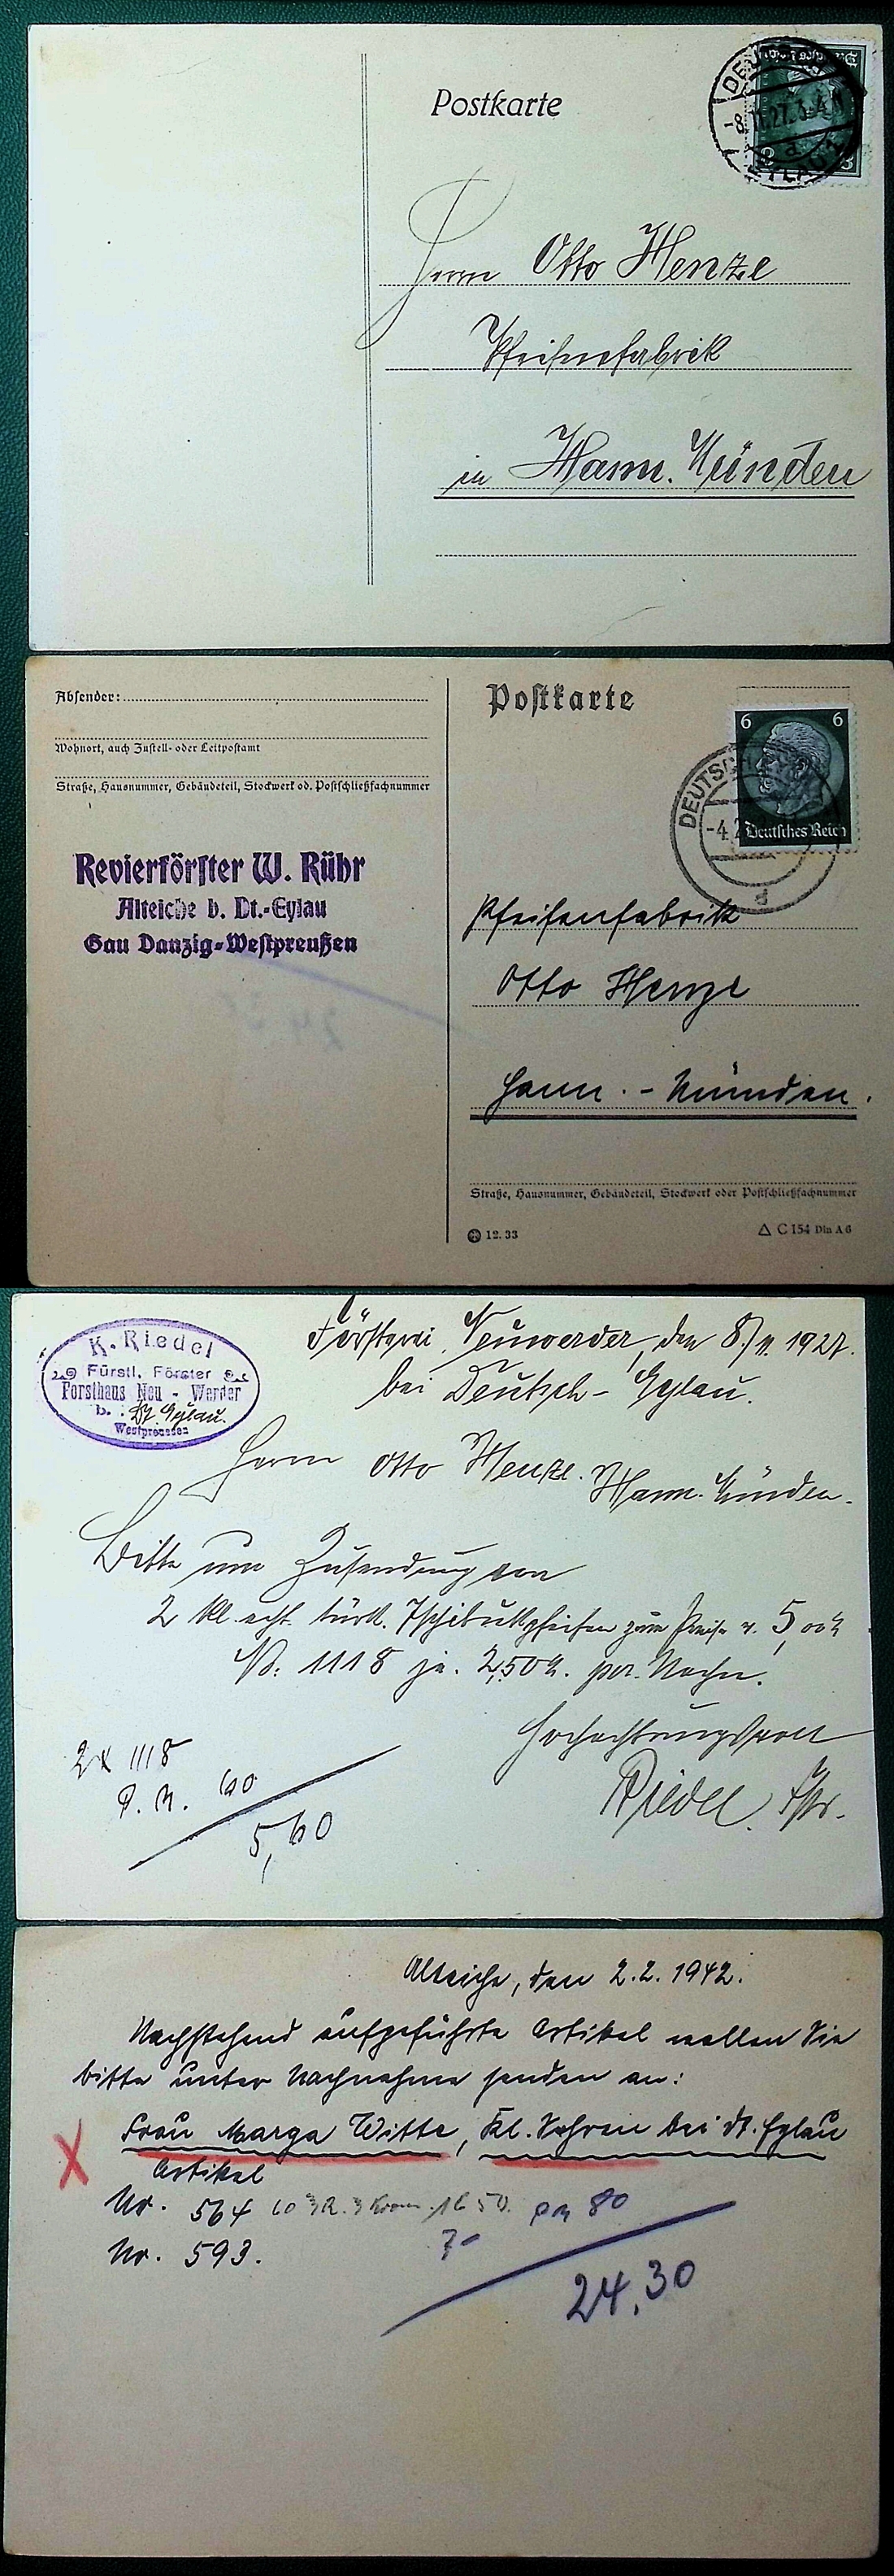 Postkarte
DEUTSCH
-8.11.27. 3-4 N
a
EYLAU 1
3
Herrn Otto Henze
Pfeifenfabrik
in Hann. Münden
Absender:
Wohnort, auch Zustell- oder Leitpostamt
Straße, Hausnummer, Gebäudeteil, Stockwerk od. Postschließfachnummer
Revierförster W. Rühr
Alteiche b. Dt.-Eylau
Gau Danzig-Westpreußen
Postkarte
6 6
Deutsches Reich
DEUTSCH
-4.2
d
Pfeifenfabrik
Otto Henze
Hann. - Münden.
Straße, Hausnummer, Gebäudeteil, Stockwerk oder Postschließfachnummer
12. 33
C 154 Din A 6
K. Riedel
Fürstl. Förster
Forsthaus Neu - Werder
b. Dt. Eylau.
Westpreussen
Försterei Neuwerder, den 8/11. 1927.
bei Deutsch-Eylau.
Herrn Otto Henze. Hann. Münden.
Bitte um Zusendung von
2 kl. echt. türk. Tschibukpfeifen zum Preise v. 5,00 M
No. 1118 je. 2,50 M. per. Nachn.
Hochachtungsvoll
Riedel. Fstr.
2 x 1118
P. N. 60
5,60
Alteiche, den 2.2.1942.
Nachstehend aufgeführte Artikel wollen Sie
bitte unter Nachnahme senden an:
X
Frau Marga Witte, Kl. Sehren bei Dt. Eylau
Artikel
Nr. 564 16 50. pn 80
Nr. 593. 7-
24,30